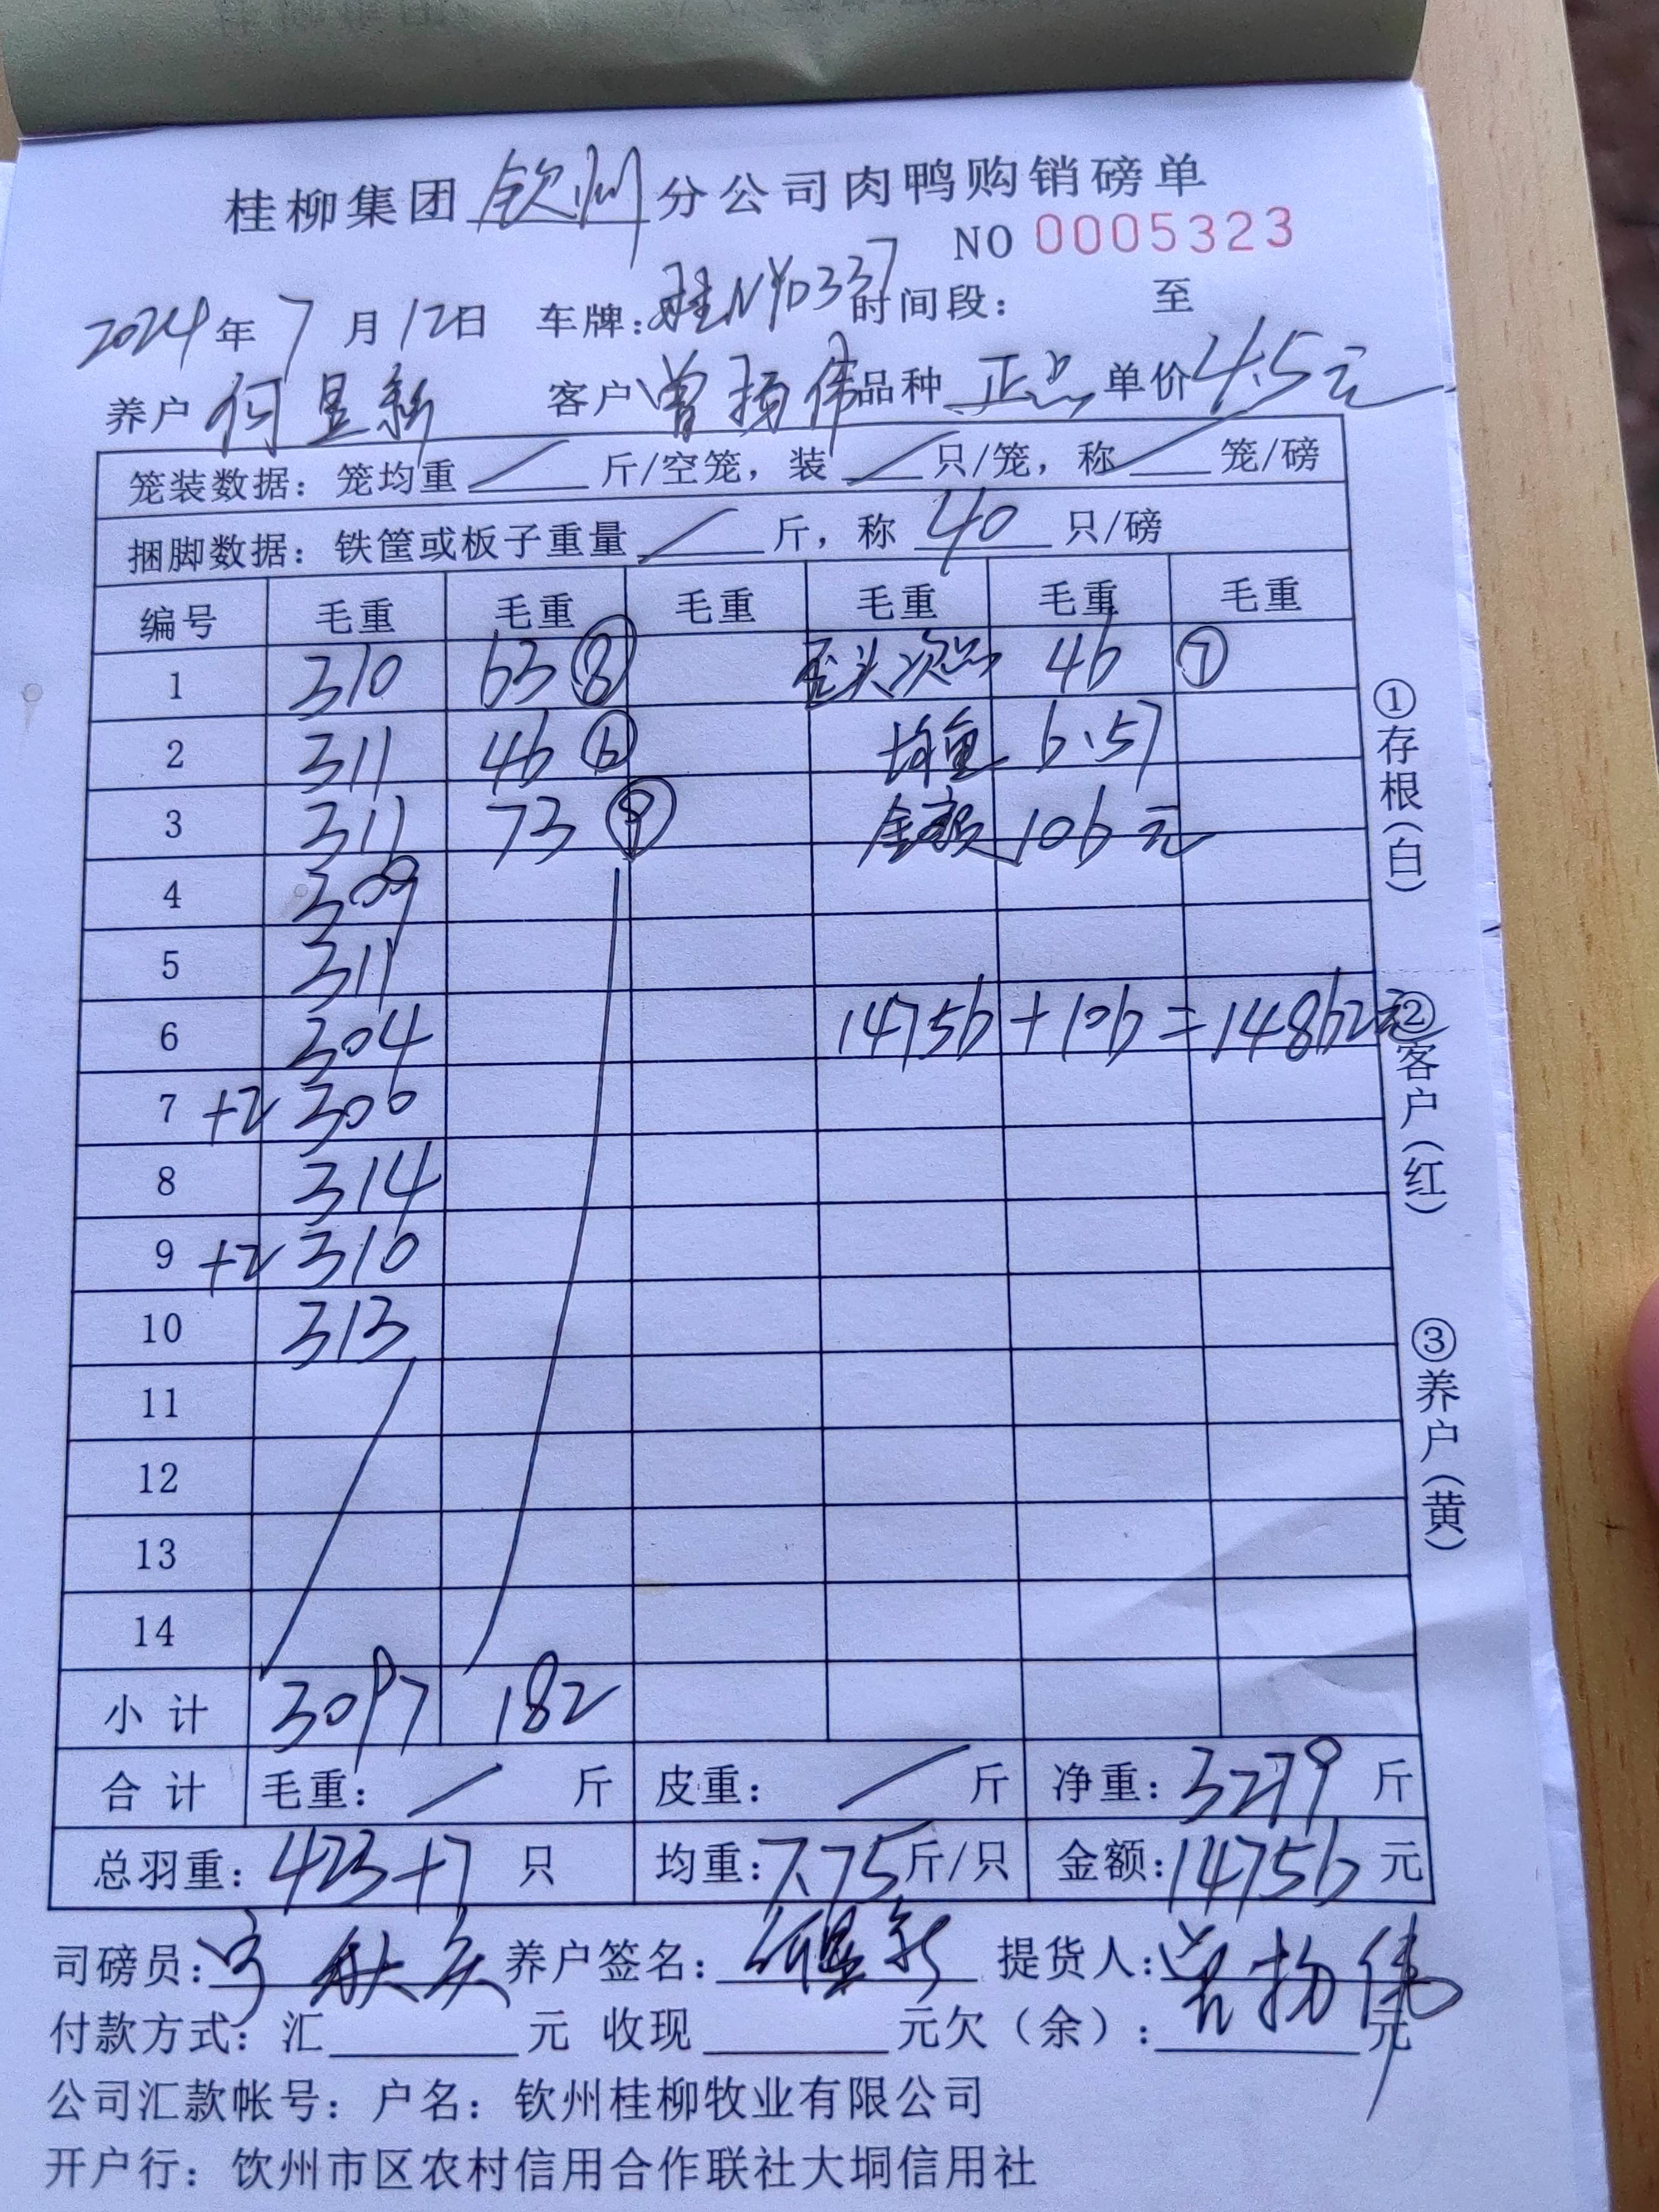 桂柳集团 钦州 分公司肉鸭购销磅单
NO 0005323
2024年 7 月 12日 车牌:桂NY0337 时间段: 至
养户 何昱新 客户 曾扬伟 品种 正品 单价 4.5元
笼装数据: 笼均重 / 斤/空笼, 装 / 只/笼, 称 / 笼/磅
捆脚数据: 铁筐或板子重量 / 斤, 称 40 只/磅
编号 毛重 毛重 毛重 毛重 毛重 毛重
1 310 63 ⑧ 歪头次品 46 ⑦
2 311 46 ⑥ 均重 6.57
3 311 73 ⑨ 金额 106元
4 309
5 311
6 304 14756+106=14862元
7 +2 306
8 314
9 +2 310
10 313
11
12
13
14
小计 3097 182
合计 毛重: / 斤 皮重: / 斤 净重: 3279 斤
总羽重: 423+7 只 均重: 7.75斤/只 金额: 14756 元
司磅员: 养户签名: 何昱新 提货人: 曾扬伟
付款方式: 汇 元 收现 元欠(余): 元
公司汇款帐号: 户名: 钦州桂柳牧业有限公司
开户行: 饮州市区农村信用合作联社大垌信用社
①存根(白)
②客户(红)
③养户(黄)